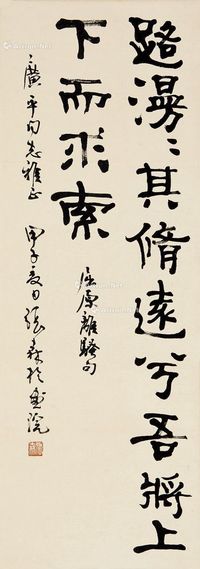 路漫〻其脩遠兮吾將上
下而求索
屈原離騷句
廣平同志雅正
甲子夏日張森於畫院